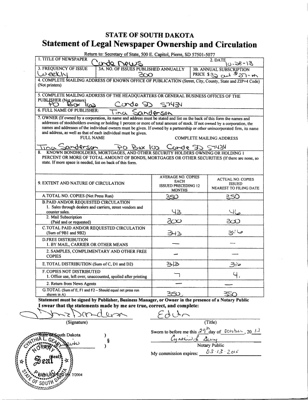 STATE OF SOUTH DAKOTA
Statement of Legal Newspaper Ownership and Circulation
Return to: Secretary of State, 500 E. Capitol, Pierre, SD 57501-5077
1. TITLE OF NEWSPAPER
Conde News
2. DATE
10-28-13
3. FREQUENCY OF ISSUE
Weekly
3A. NO. OF ISSUES PUBLISHED ANNUALLY
3B. ANNUAL SUBSCRIPTION
PRICE
4. COMPLETE MAILING ADDRESS OF KNOWN OFFICE OF PUBLICATION (Street, City, County, State and ZIP+4 Code)
(Not printers)
5. COMPLETE MAILING ADDRESS OF THE HEADQUARTERS OR GENERAL BUSINESS OFFICES OF THE
PUBLISHER (Not printers)
PO Box 162 Conde SD 57434
6. FULL NAME OF PUBLISHER:
Tina Sanderson
7. OWNER (If owned by a corporation, its name and address must be stated and also on the back of this form the names and
addresses of stockholders owning or holding 1 percent or more of total amount of stock. If not owned by a corporation, the
names and addresses of the individual owners must be given. If owned by a partnership or other unincorporated firm, its name
and address, as well as that of each individual must be given.
FULL NAME
COMPLETE MAILING ADDRESS
Tina Sanderson PO Box 162 Conde SD 57434
8. KNOWN BONDHOLDERS, MORTGAGEES, AND OTHER SECURITY HOLDERS OWNING OR HOLDING 1
PERCENT OR MORE OF TOTAL AMOUNT OF BONDS, MORTGAGES OR OTHER SECURITIES (If there are none, so
state. If more space is needed, list on back of this form.
9. EXTENT AND NATURE OF CIRCULATION
AVERAGE NO. COPIES
EACH
ISSUED PRECEDING 12
MONTHS
ACTUAL NO. COPIES
ISSUED
NEAREST TO FILING DATE
A. TOTAL NO. COPIES (Net Press Run)
350
350
B. PAID AND/OR REQUESTED CIRCULATION
1. Sales through dealers and carriers, street vendors and
counter sales.
43
46
2. Mail Subscription
(Paid and or requested)
300
300
C. TOTAL PAID AND/OR REQUESTED CIRCULATION
(Sum of 9B1 and 9B2)
343
346
D. FREE DISTRIBUTION
1. BY MAIL, CARRIER OR OTHER MEANS
2. SAMPLES, COMPLIMENTARY AND OTHER FREE
COPIES
E. TOTAL DISTRIBUTION (Sum of C, D1 and D2)
343
346
F. COPIES NOT DISTRIBUTED
1. Office use, left over, unaccounted, spoiled after printing
7
4
2. Return from News Agents
G. TOTAL (Sum of E, F1 and F2 - Should equal net press run
shown in A)
350
350
Statement must be signed by Publisher, Business Manager, or Owner in the presence of a Notary Public
I swear that the statements made by me are true, correct, and complete:
Editor
(Signature)
(Title)
State of South Dakota
Sworn to before me this 29th day of October, 20 13
Notary Public
My commission expires:
Seal
SOUTH DAKOTA